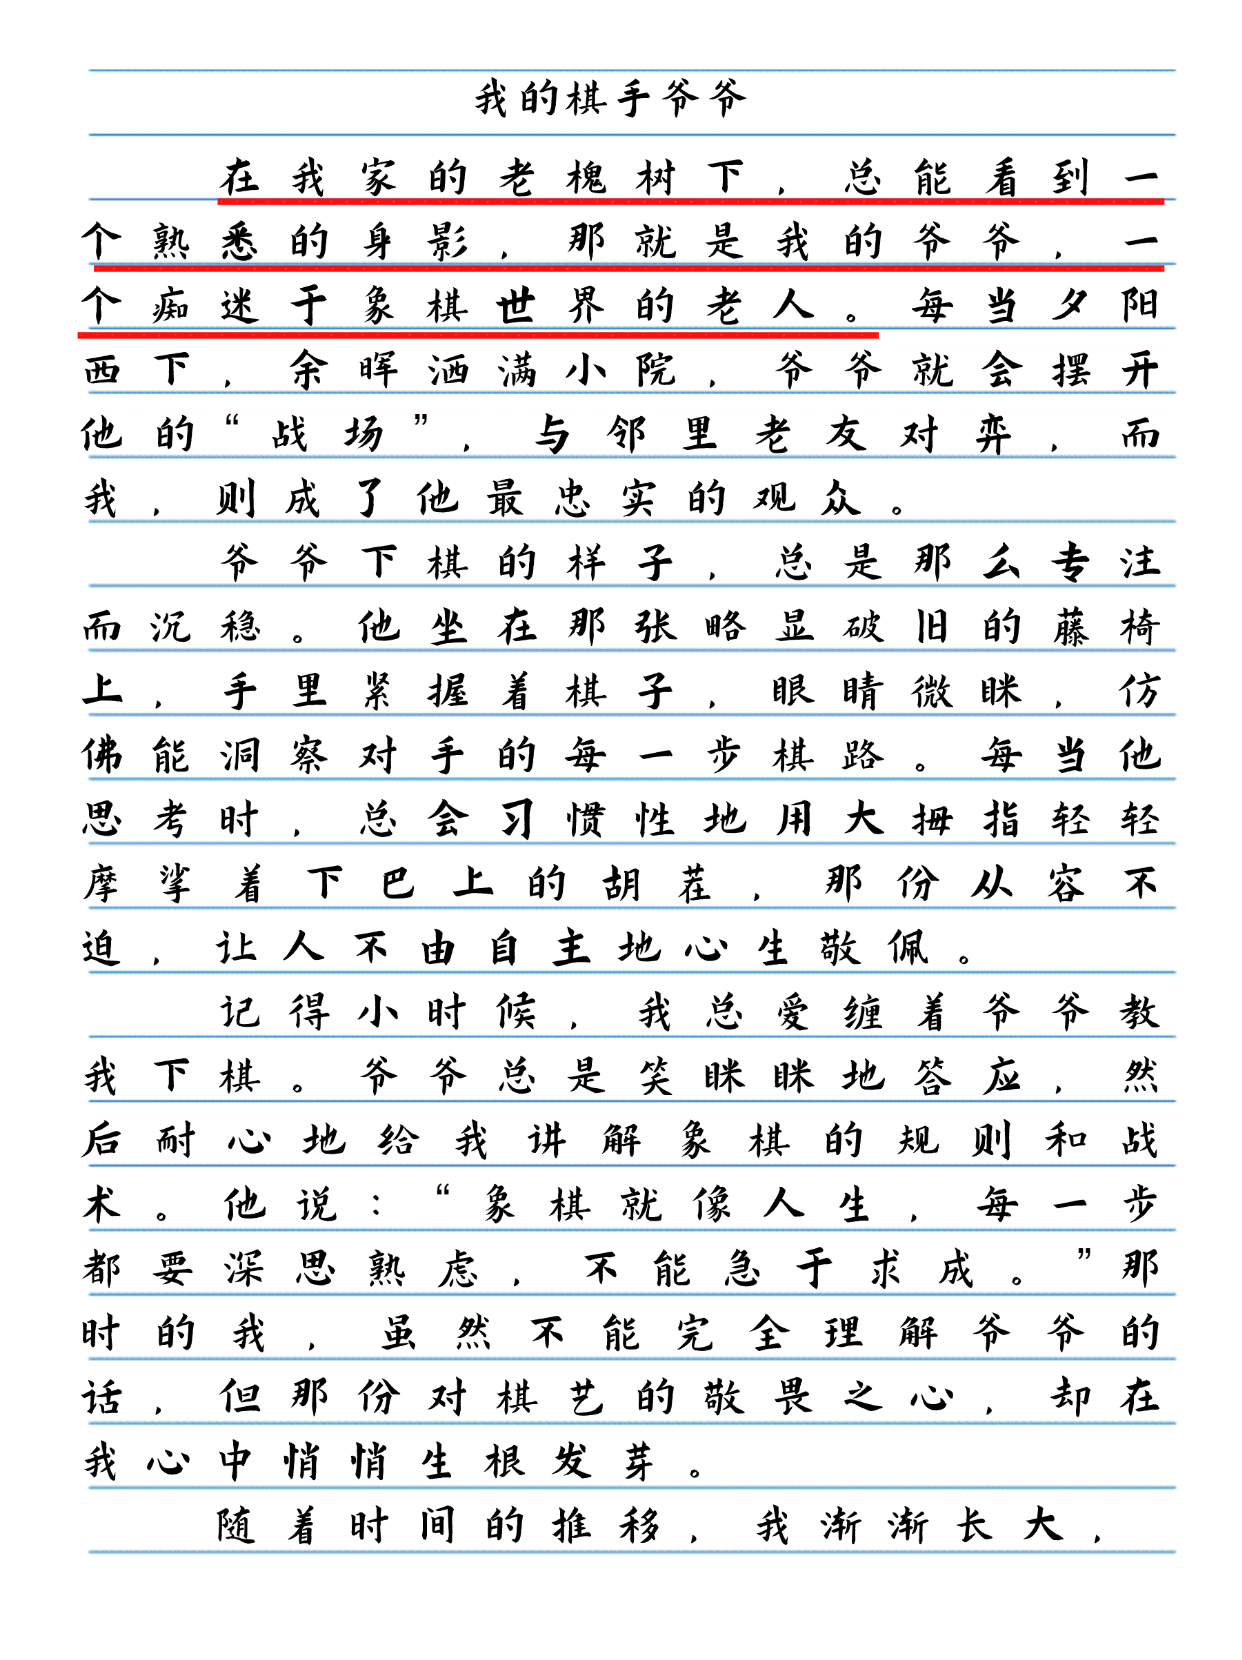 我的棋手爷爷
在我家的老槐树下，总能看到一
个熟悉的身影，那就是我的爷爷，一
个痴迷于象棋世界的老人。每当夕阳
西下，余晖洒满小院，爷爷就会摆开
他的“战场”，与邻里老友对弈，而
我，则成了他最忠实的观众。
爷爷下棋的样子，总是那么专注
而沉稳。他坐在那张略显破旧的藤椅
上，手里紧握着棋子，眼睛微眯，仿
佛能洞察对手的每一步棋路。每当他
思考时，总会习惯性地用大拇指轻轻
摩挲着下巴上的胡茬，那份从容不
迫，让人不由自主地心生敬佩。
记得小时候，我总爱缠着爷爷教
我下棋。爷爷总是笑眯眯地答应，然
后耐心地给我讲解象棋的规则和战
术。他说：“象棋就像人生，每一步
都要深思熟虑，不能急于求成。”那
时的我，虽然不能完全理解爷爷的
话，但那份对棋艺的敬畏之心，却在
我心中悄悄生根发芽。
随着时间的推移，我渐渐长大，